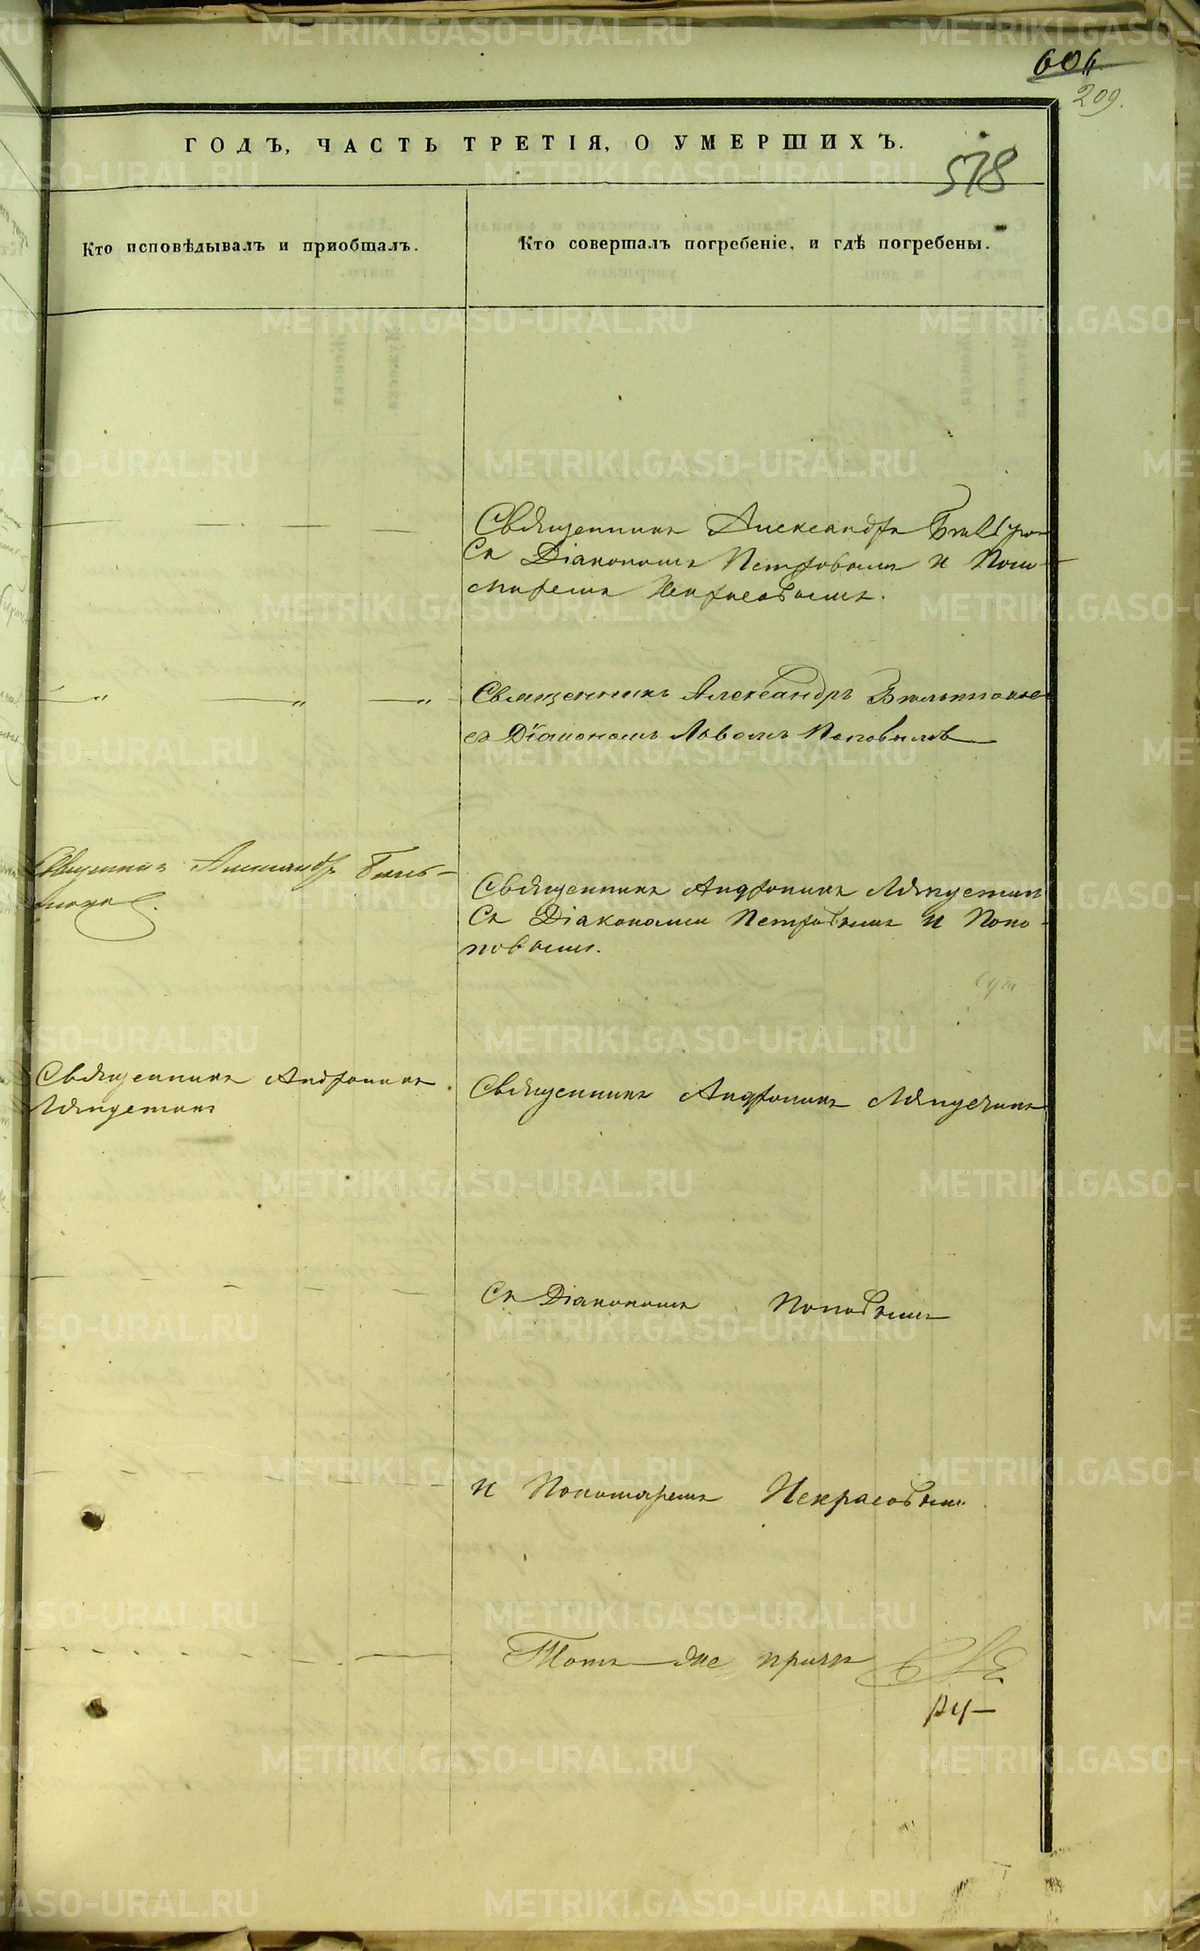 606
209.
ГОДЪ, ЧАСТЬ ТРЕТІЯ, О УМЕРШИХЪ.
578
Кто исповѣдывалъ и пріобщалъ.
Кто совершалъ погребеніе, и гдѣ погребены.
Священникъ Александръ
Съ Діакономъ Петровымъ и Поно-
маремъ Некрасовымъ.
Священникъ Александръ
съ Діакономъ
Священникъ Александръ
Священникъ Андроникъ Ляпустинъ
Съ Діаконами Петровымъ и Попо-
повымъ.
Священникъ Андроникъ
Ляпустинъ
Священникъ Андроникъ Ляпустинъ
Съ Діакономъ Поповымъ
и Пономаремъ Некрасовымъ
Тотъ же причтъ
METRIKI.GASO-URAL.RU